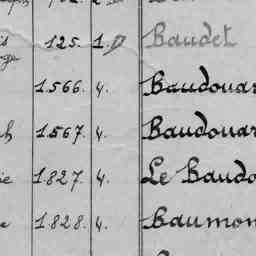 125. 1. Baudet
1.566. 4. Baudouar
h 1.567. 4. Baudouar
ie 1.827. 4. Le Baudo
e 1.828. 4. Baumon